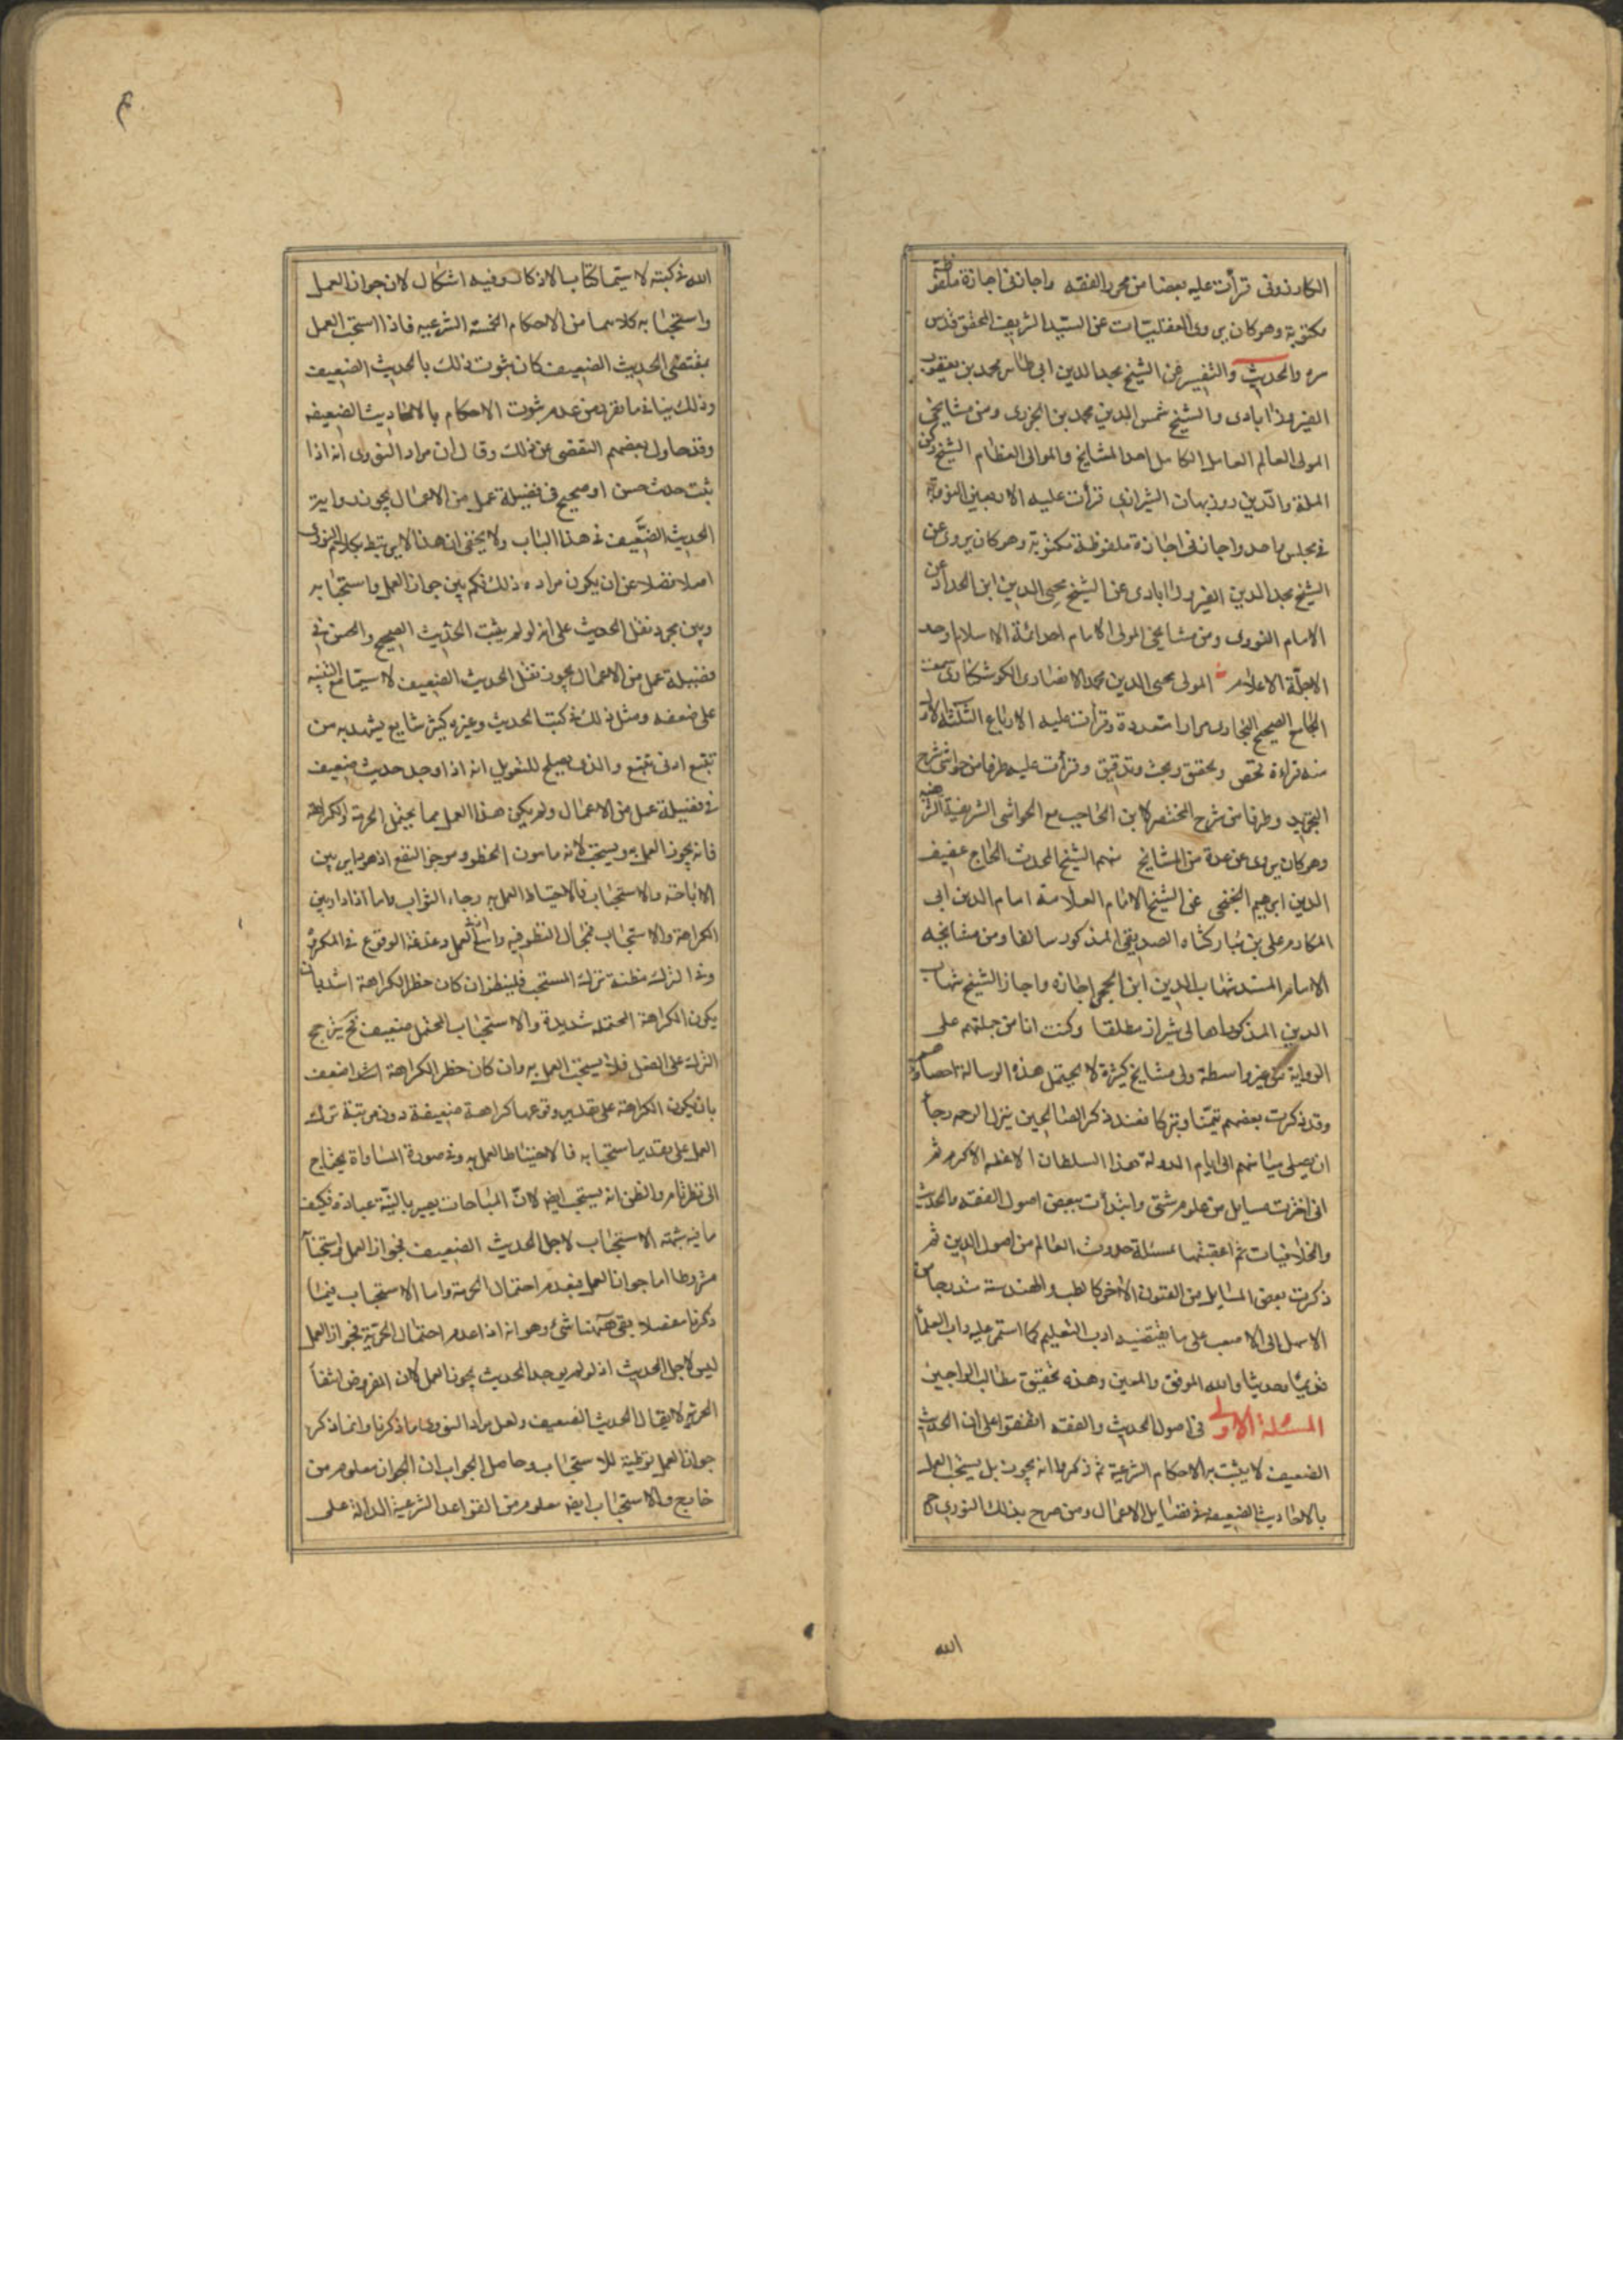 الكازرونى قرأت عليه بعضا من محرر الفقه واجازنى اجازة ملفوظة
مكتوبة وهو كان يروى العقليات عن السيد الشريف المحقق قدس
سره والحديث والتفسير عن الشيخ مجد الدين ابى طاهر محمد بن يعقوب
الفيروزابادى والشيخ شمس الدين محمد بن الجزرى ومن مشايخى
المولى العالم العامل الكامل احد المشايخ والموالى العظام الشيخ ركن
الملة والدين روزبهان الشيرازى قرأت عليه الاربعين النووية
فى مجلس واحد واجازنى اجازة ملفوظة مكتوبة وهو كان يروى عن
الشيخ مجد الدين الفيروزابادى عن الشيخ محيى الدين ابن الحداد عن
الامام النووى ومن مشايخى المولى الامام احد ائمة الاسلام اوحد
الاجلة الاعلام المولى محيى الدين محمد الانصارى الكوشكنارى سمعت
الجامع الصحيح للبخارى مرارا متعددة وقرأت عليه الارباع الثلثة الاول
منه قراءة تفحص وتحقق وبحث وتدقيق وقرأت عليه طرفا من حواشى شرح
التجريد وطرفا من شرح المختصر لابن الحاجب مع الحواشى الشريفية الشريفية
وهو كان يروى عن عدة من المشايخ منهم الشيخ المحدث الحاج عفيف
الدين ابرهيم الخنجى عن الشيخ الامام العلامة امام الدين ابى
المكارم على بن مباركشاه الصديقى المذكور سالفا ومن مشايخه
الامام المسند شهاب الدين ابن الحجى اجازه واجاز الشيخ شهاب
الدين المذكور اهالى شيراز مطلقا وكنت انا من جملتهم على
الرواية من غير واسطة ولى مشايخ كثيرة لا يحتمل هذه الرسالة احصاءهم
وقد ذكرت بعضهم تيمنا وتبركا فعند ذكر الصالحين ينزل الرحمة رجاء
ان يصل ميامنهم الى ايام الدولة هذا السلطان الاعظم الاكرم ثم
انى اخترت مسايل من علوم شتى وابتدأت ببعض اصول الفقه والحديث
والخلافيات ثم اعقبتها بمسئلة حدوث العالم من اصول الدين ثم
ذكرت بعض المسايل من الفنون الاخر كالطب والهندسة متدرجا من
الاسهل الى الاصعب على ما يقتضيه ادب التعليم كما استمر عليه داب العلماء
قديما وحديثا والله الموفق والمعين وهذه تحقيق مطالب الراجين
المسئلة الاولى فى اصول الحديث والفقه اتفقوا على ان الحديث
الضعيف لا يثبت به الاحكام الشرعية ثم ذكروا انه يجوز بل يستحب العمل
بالاحاديث الضعيفة فى فضايل الاعمال وممن صرح بذلك النووى رحمه
الله
الله فى كتبه لا سيما كتاب الاذكار وفيه اشكال لان جواز العمل
واستحبابه كلاهما من الاحكام الخمسة الشرعيه فاذا استحب العمل
بمقتضى الحديث الضعيف كان ثبوت ذلك بالحديث الضعيف
وذلك ينافى ما تقرر من عدم ثبوت الاحكام بالاحاديث الضعيفه
وقد حاول بعضهم التفصى عن ذلك وقال ان مراد النووى انه اذا
ثبت حديث حسن او صحيح فى فضيلة عمل من الاعمال يجوز رواية
الحديث الضعيف فى هذا الباب ولا يخفى ان هذا لا يرتبط بكلام النووى
اصلا فضلا عن ان يكون مراده ذلك فكم بين جواز العمل واستحبابه
وبين مجرد نقل الحديث على انه لو لم يثبت الحديث الصحيح والحسن فى
فضيلة عمل من الاعمال يجوز نقل الحديث الضعيف لا سيما مع التنبيه
على ضعفه ومثل ذلك فى كتب الحديث وغيره كثير شايع يشهد به من
تتبع ادنى تتبع والذى يصلح للتعويل انه اذا وجد حديث ضعيف
فى فضيلة عمل من الاعمال ولم يكن هذا العمل مما يحتمل الحرمة والكراهة
فانه يجوز العمل به ويستحب لانه مامون الخطر ومرجو النفع اذ هو داير بين
الاباحة والاستحباب فالاحتياط العمل به رجاء الثواب واما اذا دار بين
الكراهة والاستحباب فمجال النظر فيه واسع اذ فى العمل دغدغة الوقوع فى المكروه
وفى الترك مظنة ترك المستحب فلينظر ان كان خطر الكراهة اشد بان
يكون الكراهة المحتملة شديدة والاستحباب المحتمل ضعيف فح يترجح
الترك على الفعل فلا يستحب العمل به وان كان خطر الكراهة اضعف
بان يكون الكراهة على تقدير وقوعها كراهة ضعيفة دون مرتبة ترك
العمل على تقدير استحبابه فالاحتياط العمل به وفى صورة المساواة يحتاج
الى نظر تام والظن انه يستحب ايضا لان المباحات يصير بالنية عبادة فكيف
ما فيه شبهة الاستحباب لاجل الحديث الضعيف فجواز العمل واستحبابه
مشروطا اما جواز العمل فبعدم احتمال الحرمة واما الاستحباب فبما
ذكرنا مفصلا بقى ههنا شئ وهو انه اذا عدم احتمال الحرمة فجواز العمل
ليس لاجل الحديث اذ لو لم يوجد الحديث يجوز العمل لان المفروض انتفاء
الحرمة لا يقال الحديث الضعيف ولعل مراد النووى ما ذكرنا وانما ذكر
جواز العمل توطية للاستحباب وحاصل الجواب ان الجواز معلوم من
خارج والاستحباب ايضا معلوم من القواعد الشرعية الدالة على